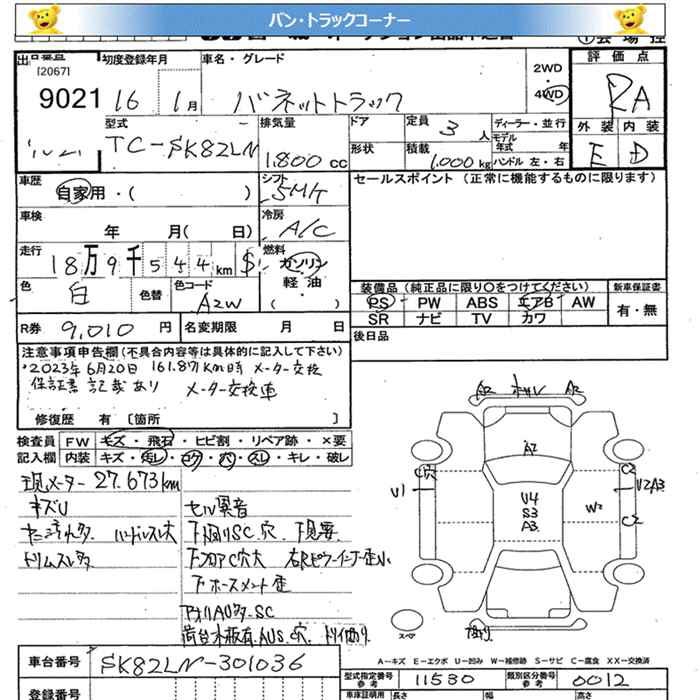 バン・トラックコーナー
[2067]
初度登録年月
車名・グレード
2WD
・
4WD
評価点
9021
16 1月
バネットトラック
RA
外装 内装
E D
型式
TC-SK82LN
排気量
1,800 cc
ドア
形状
定員
3 人
積載
1,000 kg
ディーラー・並行
モデル
年式 年
ハンドル 左・右
車歴
自家用・( )
シフト
5MT
セールスポイント (正常に機能するものに限ります)
車検
年 月( 日)
冷房
A/C
走行
18万9千544km $
燃料
ガソリン
軽油
・
( )
色
白
色替
色コード
A2W
装備品 (純正品に限り○をつけてください)
新車保証書
PS PW ABS エアB AW
有・無
SR ナビ TV カワ
R券 9,010 円
名変期限 月 日
後日品
注意事項申告欄(不具合内容等は具体的に記入して下さい)
2023年6月20日 161.871km時 メーター交換
保証書 記載あり メーター交換車
修復歴 有 [箇所 ]
検査員
記入欄
FW キズ・飛石・ヒビ割・リペア跡・×要
内装 キズ・汚レ・コゲ・穴・スレ・キレ・破レ
現メーター 27.673km
キズU
ハンドルスレ大
セル異音
下廻りSC穴.下見要
下フロアC穴大
荷台木板有.
A2 A2
A2
U1
V4
S3
A3
W2
C2
U2A3
C2
スペア
A-キズ E-エクボ U-凹み W-補修跡 S-サビ C-腐食 XX-交換済
車台番号 SK82LN-301036
登録番号
型式指定番号
参考
11530
類別区分番号
参考
0012
車庫証明用 長さ 幅 高さ